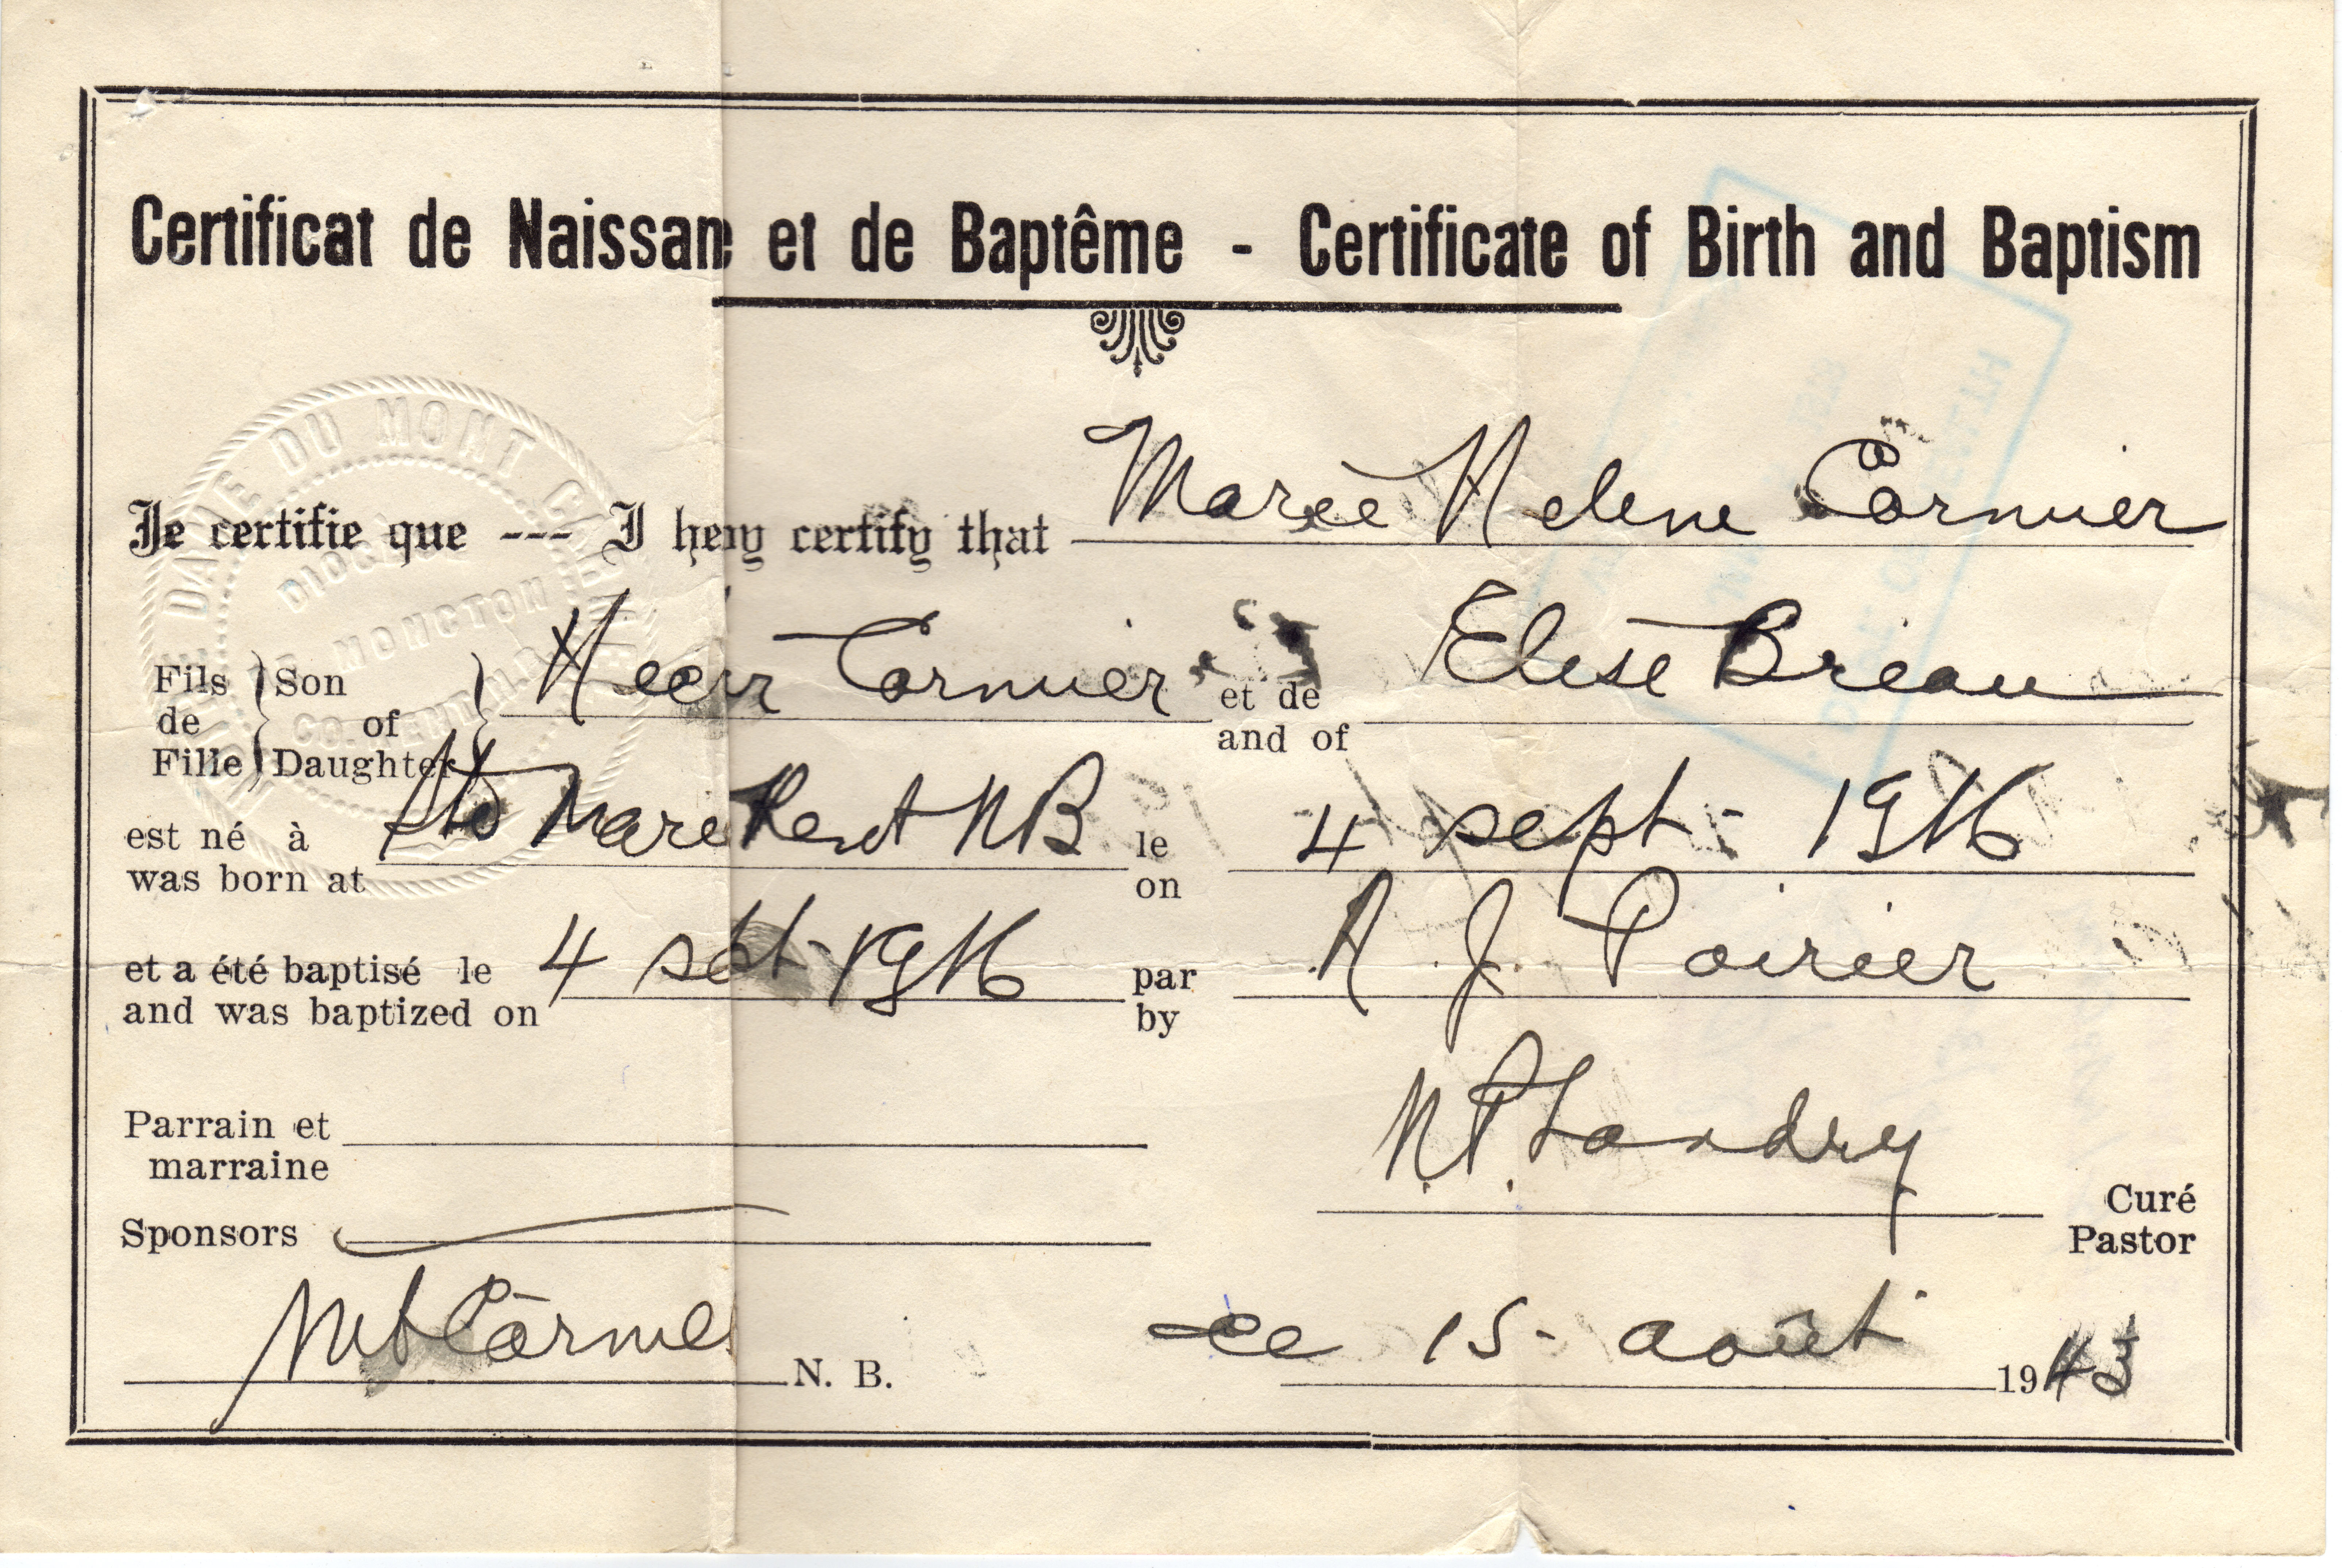 Certificat de Naissan e et de Baptême - Certificate of Birth and Baptism
DAME DU MONT C
DIOC
MONCTON
CO. KENT N.B.
Je certifie que --- I he y certify that Marie Helene Cormier
Fils de Fille Son of Daughter Cormier et de and of Elise Breau
est né à was born at Ste Marie Kent NB le on 4 sept - 1916
et a été baptisé le and was baptized on 4 sept - 1916 par by A. J. Poirier
Parrain et marraine
N. P. Landry
Curé Pastor
Sponsors
Mt Carmel N. B. ce 15 - août 1943